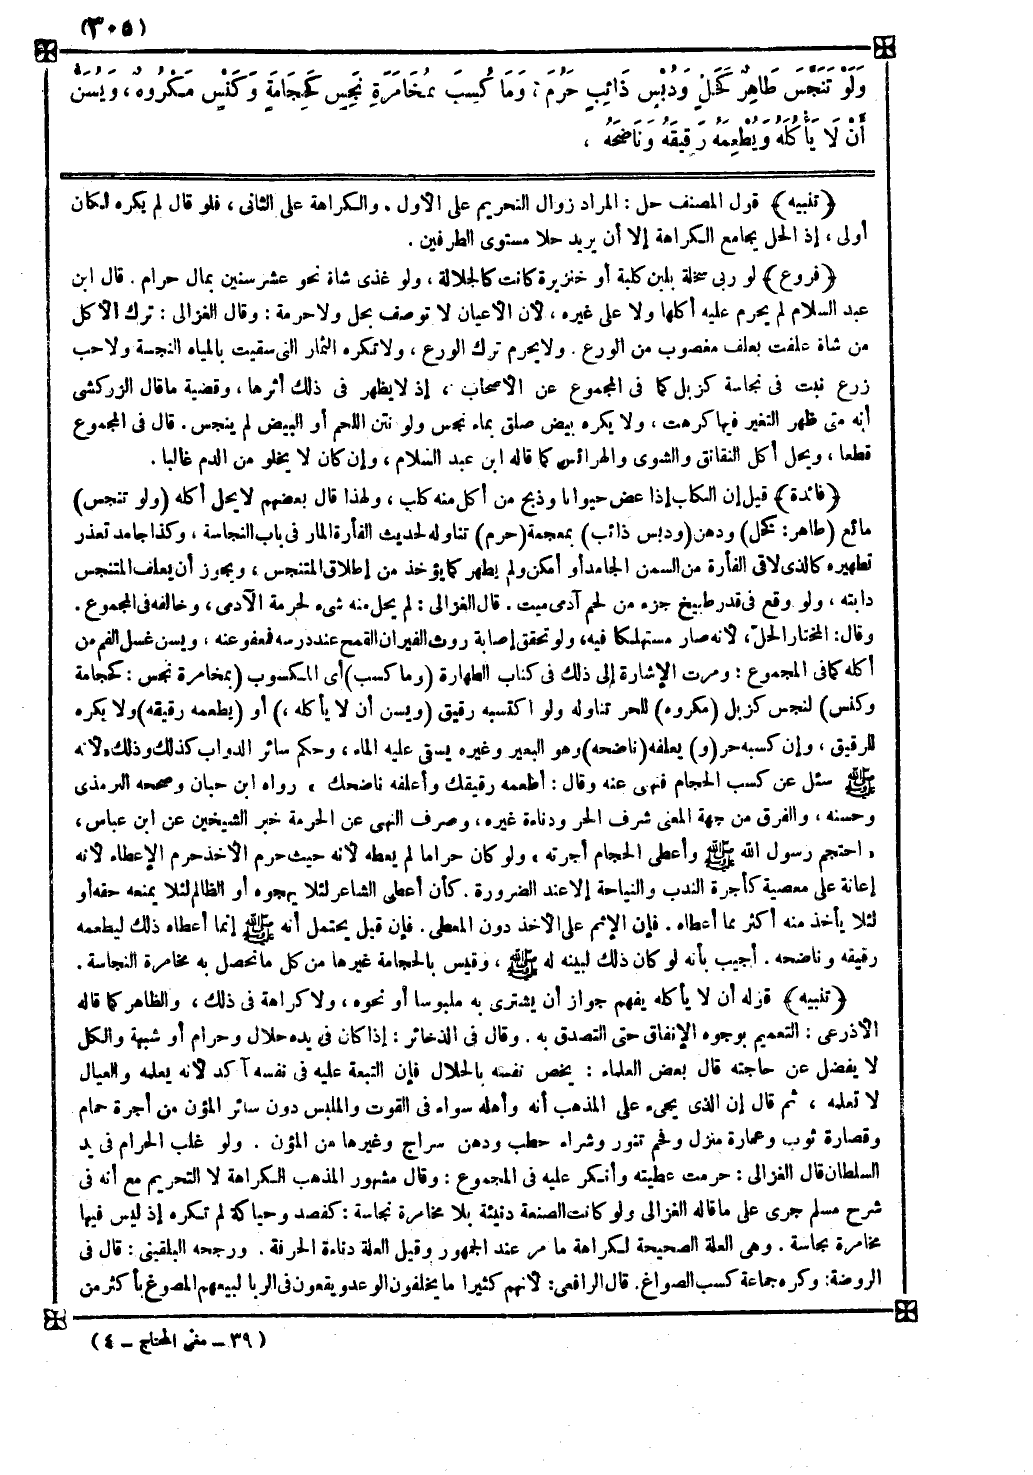 (٣٠٥)
وَلَوْ تَنَجَّسَ طَاهِرٌ كَخَلٍّ وَدِبْسٍ ذَائِبٍ حَرُمَ ، وَمَا كُسِبَ بِمُخَامَرَةِ نَجَسٍ كَحِجَامَةٍ وَكَنْسٍ مَكْرُوهٌ ، وَيُسَنُّ
أَنْ لَا يَأْكُلَهُ وَيُطْعِمَهُ رَقِيقَهُ وَنَاضِحَهُ ،
﴿تنبيه﴾ قول المصنف حل : المراد زوال التحريم على الأول . والكراهة على الثانى ، فلو قال لم يكره لكان
أولى ، إذ الحل يجامع الكراهة إلا أن يريد حلا مستوى الطرفين .
﴿فروع﴾ لو ربى سخلة بلبن كلبة أو خنزيرة كانت كالجلالة ، ولو غذى شاة نحو عشر سنين بمال حرام . قال ابن
عبد السلام لم يحرم عليه أكلها ولا على غيره ، لأن الأعيان لا توصف بحل ولا حرمة : وقال الغزالى : ترك الأكل
من شاة علفت بعلف مغصوب من الورع . ولا يحرم ترك الورع ، ولا تكره الثمار التى سقيت بالمياه النجسة ولا حب
زرع نبت فى نجاسة كزبل كما فى المجموع عن الأصحاب ، إذ لا يظهر فى ذلك أثرها ، وقضية ما قال الزركشى
أنه متى ظهر التغير فيها كرهت ، ولا يكره بيض صلق بماء نجس ولو نتن اللحم أو البيض لم ينجس . قال فى المجموع
قطعا ، ويحل أكل النقانق والشوى والهرائس كما قاله ابن عبد السلام ، وإن كان لا يخلو من الدم غالبا .
﴿فائدة﴾ قيل إن الكلب إذا عض حيوانا وذبح من أكل منه كلب ، ولهذا قال بعضهم لا يحل أكله (ولو تنجس)
مائع (طاهر: كخل) ودهن (ودبس ذائب) بمعجمة (حرم) تناوله لحديث الفأرة المار فى باب النجاسة ، وكذا جامد تعذر
تطهيره كالذى لاقى الفأرة من السمن الجامد أو أمكن ولم يطهر كما يؤخذ من إطلاق المتنجس ، ويجوز أن يعلف المتنجس
دابته ، ولو وقع فى قدر طبيخ جزء من لحم آدمى ميت . قال الغزالى : لم يحل منه شىء لحرمة الآدمى ، وخالفه فى المجموع .
وقال: المختار الحل، لأنه صار مستهلكا فيه، ولو تحقق إصابة روث الفيران القمح عند درسه فمعفو عنه ، ويسن غسل الفم من
أكله كما فى المجموع : ومرت الإشارة إلى ذلك فى كتاب الطهارة (وما كسب) أى المكسوب (بمخامرة نجس : كحجامة
وكنس) لنجس كزبل (مكروه) للحر تناوله ولو اكتسبه رقيق (ويسن أن لا يأكله ،) أو (يطعمه رقيقه) ولا يكره
للرقيق ، وإن كسبه حر (و) يعلفه (ناضحه) وهو البعير وغيره يسقى عليه الماء ، وحكم سائر الدواب كذلك وذلك «لأنه
ﷺ سئل عن كسب الحجام فنهى عنه وقال : أطعمه رقيقك وأعلفه ناضحك » رواه ابن حبان وصححه الترمذى
وحسنه ، والفرق من جهة المعنى شرف الحر ودناءة غيره ، وصرف النهى عن الحرمة خبر الشيخين عن ابن عباس ،
« احتجم رسول الله ﷺ وأعطى الحجام أجرته » ولو كان حراما لم يعطه لأنه حيث حرم الأخذ حرم الإعطاء لأنه
إعانة على معصية كأجرة الندب والنياحة إلا عند الضرورة . كأن أعطى الشاعر لئلا يهجوه أو الظالم لئلا يمنعه حقه أو
لئلا يأخذ منه أكثر مما أعطاه . فإن الإثم على الآخذ دون المعطى . فإن قيل يحتمل أنه ﷺ إنما أعطاه ذلك ليطعمه
رقيقه وناضحه . أجيب بأنه لو كان ذلك لبينه له ﷺ ، وقيس بالحجامة غيرها من كل ما تحصل به مخامرة النجاسة .
﴿تنبيه﴾ قوله أن لا يأكله يفهم جواز أن يشترى به ملبوسا أو نحوه ، ولا كراهة فى ذلك ، والظاهر كما قاله
الأذرعى : التعميم بوجوه الإنفاق حتى التصدق به . وقال فى الذخائر : إذا كان فى يده حلال وحرام أو شبهة والكل
لا يفضل عن حاجته قال بعض العلماء : يخص نفسه بالحلال فإن التبعة عليه فى نفسه آكد لأنه يعلمه والعيال
لا تعلمه ، ثم قال إن الذى يجىء على المذهب أنه وأهله سواء فى القوت والملبس دون سائر المؤن من أجرة حمام
وقصارة ثوب وعمارة منزل وفحم تنور وشراء حطب ودهن سراج وغيرها من المؤن . ولو غلب الحرام فى يد
السلطان قال الغزالى : حرمت عطيته وأنكر عليه فى المجموع : وقال مشهور المذهب الكراهة لا التحريم مع أنه فى
شرح مسلم جرى على ما قاله الغزالى ولو كانت الصنعة دنيئة بلا مخامرة نجاسة : كفصد وحياكة لم تكره إذ ليس فيها
مخامرة نجاسة . وهى العلة الصحيحة لكراهة ما مر عند الجمهور وقيل العلة دناءة الحرفة . ورجحه البلقينى : قال فى
الروضة: وكره جماعة كسب الصواغ. قال الرافعى: لأنهم كثيرا ما يخلفون الوعد ويقعون فى الربا لبيعهم المصوغ بأكثر من
( ٣٩ – مغنى المحتاج – ٤ )